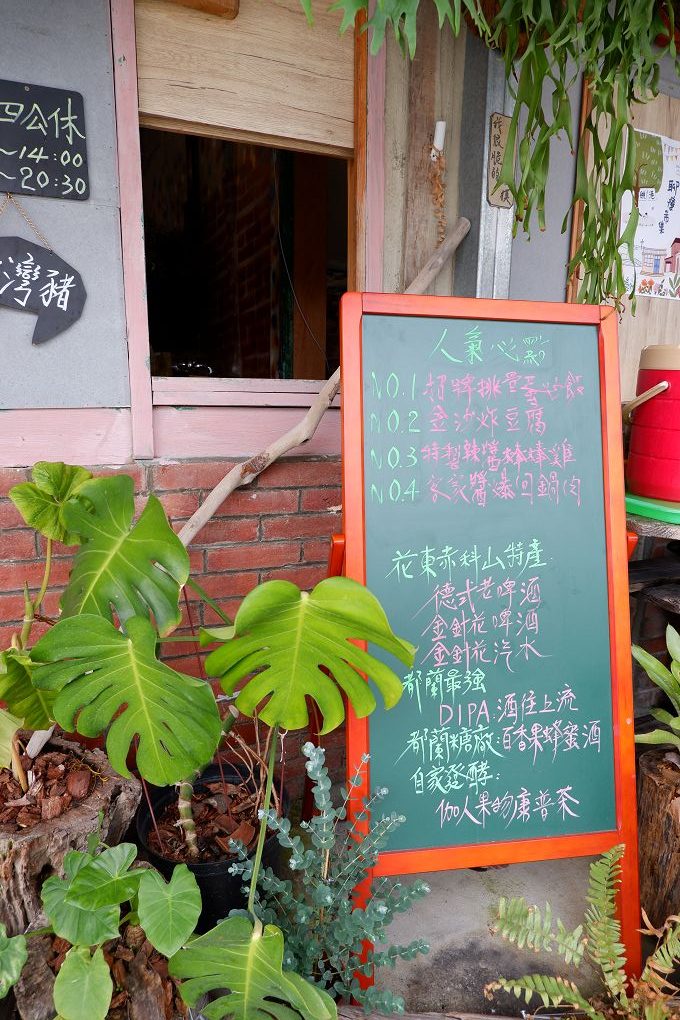 四公休
~14:00
~20:30
灣豬
人氣必點
NO.1 招牌挑疊蛋炒飯
NO.2 金沙炸豆腐
NO.3 特製辣醬棒棒雞
NO.4 家家醬爆回鍋肉
花東赤科山特產
德式老啤酒
金針花啤酒
金針花汽水
都蘭最強
DIPA:酒任上流
都蘭糖廠:百香果蜂蜜酒
自家發酵:
伽人果物康普茶